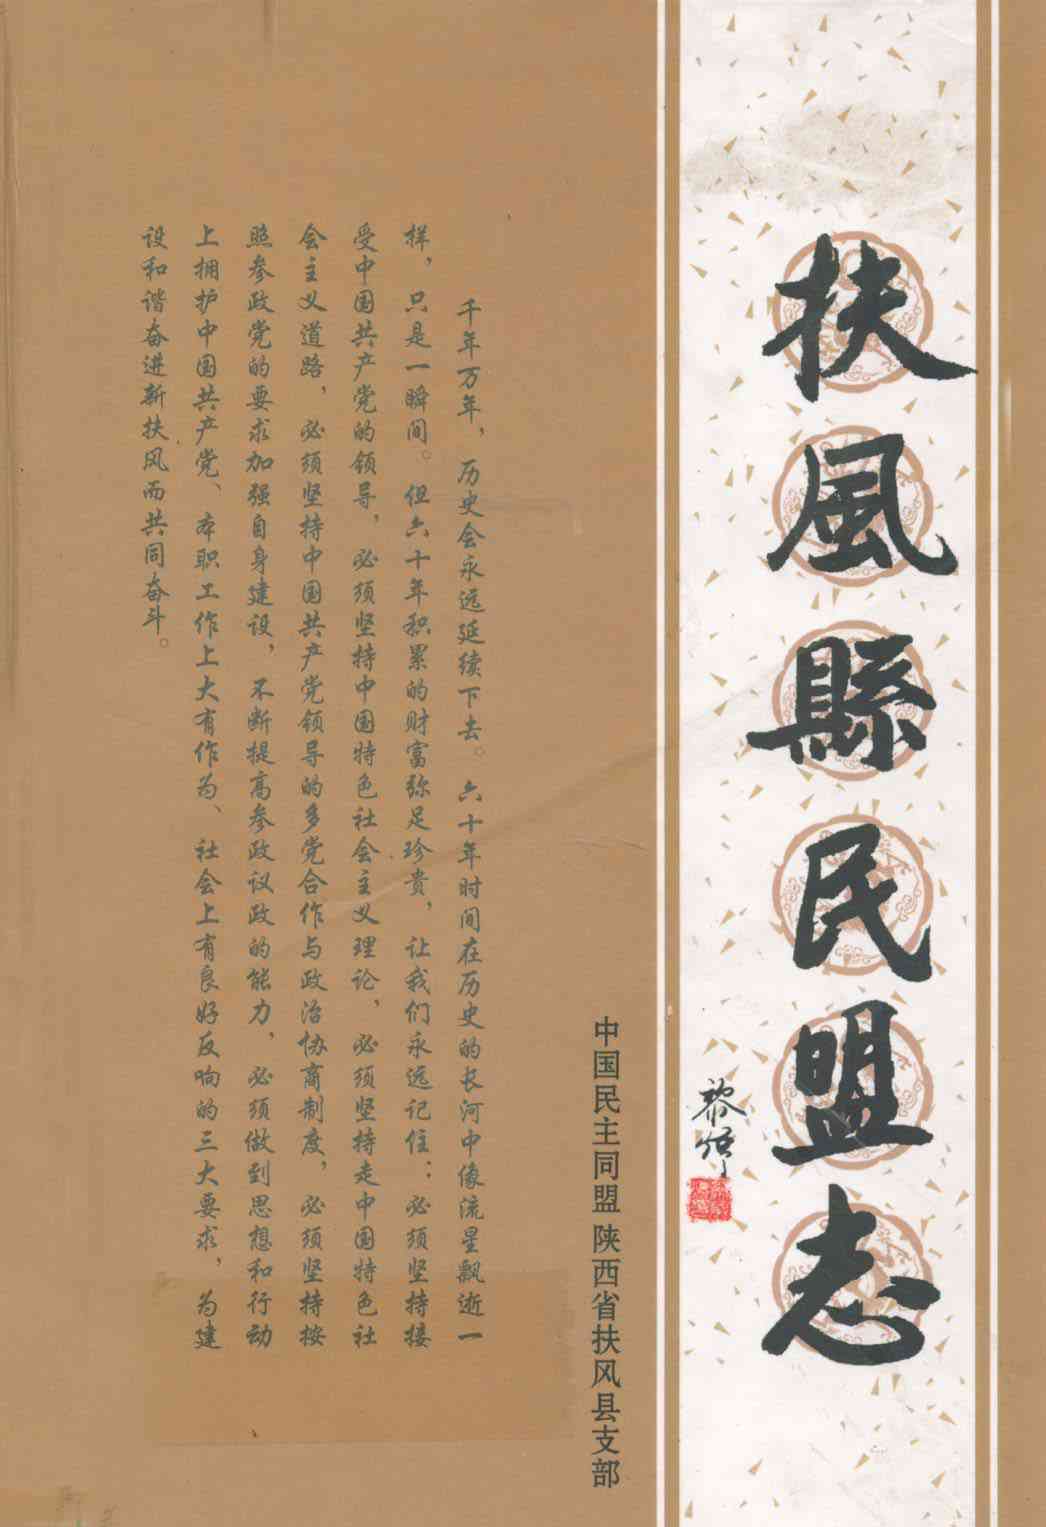 扶風縣民盟志
黎
中国民主同盟 陕西省扶风县支部
千年万年，历史会永远延续下去。六十年时间在历史的长河中像流星飘逝一
样，只是一瞬间。但六十年积累的财富弥足珍贵，让我们永远记住：必须坚持接
受中国共产党的领导，必须坚持中国特色社会主义理论，必须坚持走中国特色社
会主义道路，必须坚持中国共产党领导的多党合作与政治协商制度，必须坚持按
照参政党的要求加强自身建设，不断提高参政议政的能力，必须做到思想和行动
上拥护中国共产党、本职工作上大有作为、社会上有良好反响的三大要求，为建
设和谐奋进新扶风而共同奋斗。